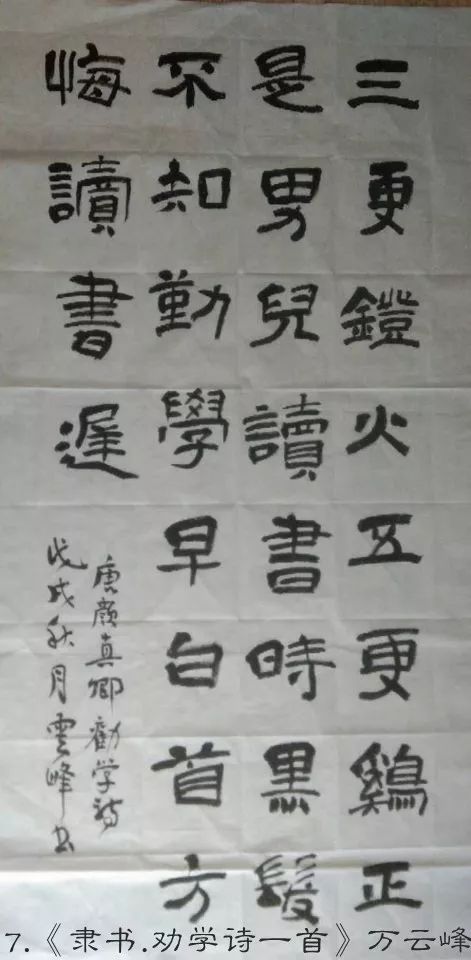 三更鐙火五更鷄正
是男兒讀書時黑髮
不知勤學早白首方
悔讀書遲
唐顏真卿勸学詩
戊戌秋月雲峰书
7.《隶书.劝学诗一首》万云峰